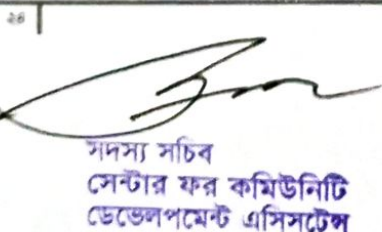 ২৪
সদস্য সচিব
সেন্টার ফর কমিউনিটি
ডেভেলপমেন্ট এসিসটেন্স